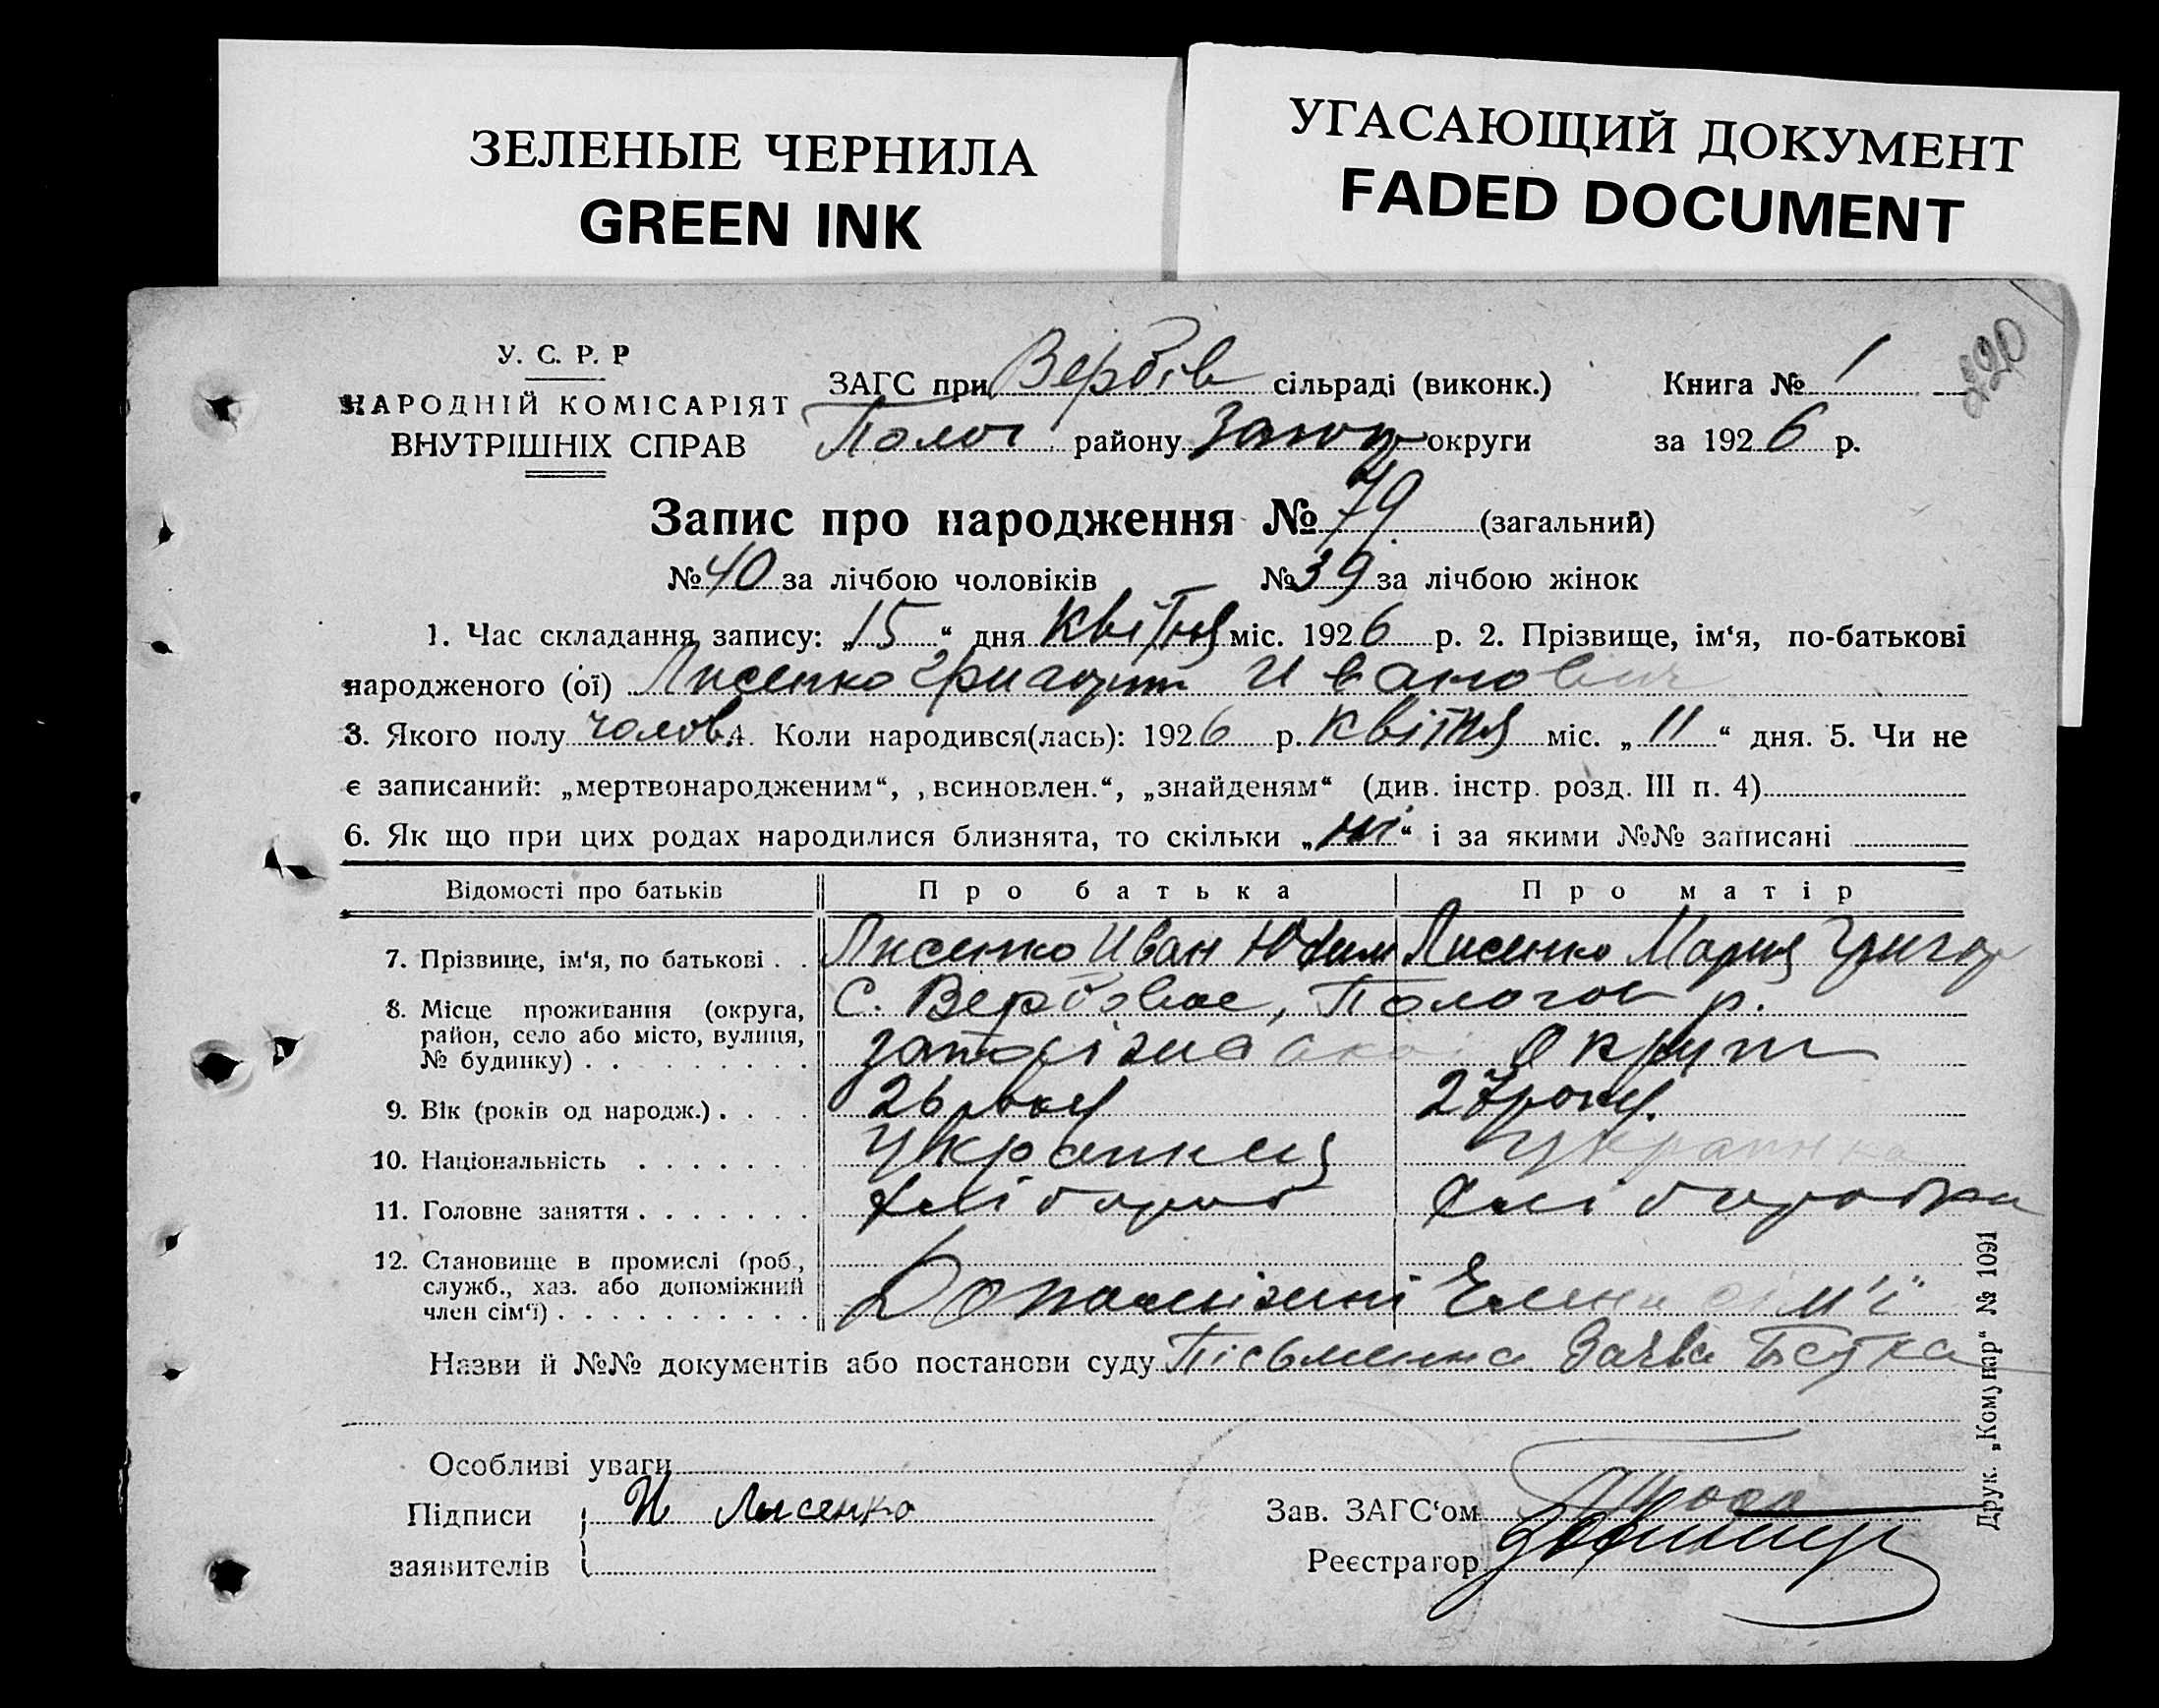 ЗЕЛЕНЫЕ ЧЕРНИЛА
GREEN INK
УГАСАЮЩИЙ ДОКУМЕНТ
FADED DOCUMENT
420
У. С. Р. Р
НАРОДНІЙ КОМІСАРІЯТ
ВНУТРІШНІХ СПРАВ
ЗАГС при Вербів сільраді (виконк.) Книга № 1
Полог району Запор округи за 1926 р.
Запис про народження № 79 (загальний)
№ 40 за лічбою чоловіків № 39 за лічбою жінок
1. Час складання запису: „15“ дня Квітня міс. 1926 р. 2. Прізвище, ім‘я, по-батькові
народженого (ої) Лисенко Григорій Иванович
3. Якого полу чолов. 4. Коли народився(лась): 1926 р. Квітня міс. „11“ дня. 5. Чи не
є записаний: „мертвонародженим“, „всиновлен.“, „знайденям“ (див. інстр. розд. III п. 4)
6. Як що при цих родах народилися близнята, то скільки „ні“ і за якими №№ записані
Відомості про батьків Про батька Про матір
7. Прізвище, ім‘я, по батькові . . Лисенко Иван Юхим Лисенко Мария Григор
8. Місце проживання (округа, район, село або місто, вулиця, № будинку) . . С. Вербове, Пологов р.
Запоріжської округи
9. Вік (років од народж.) . . . . 26 року 27 року.
10. Національність . . . . . . . Украинец Украинка
11. Головне заняття . . . . . . . Хлібороб Хліборобка
12. Становище в промислі (роб., служб., хаз. або допоміжний член сім‘ї) . . . . . . . . . . Допоміжні Члени сім'ї
Назви й №№ документів або постанови суду Пісьменна Заява Батка
Особливі уваги
Підписи И Лисенко
заявителів
Зав. ЗАГС‘ом
Реєстратор
Друк. „Комунар“ № 1091